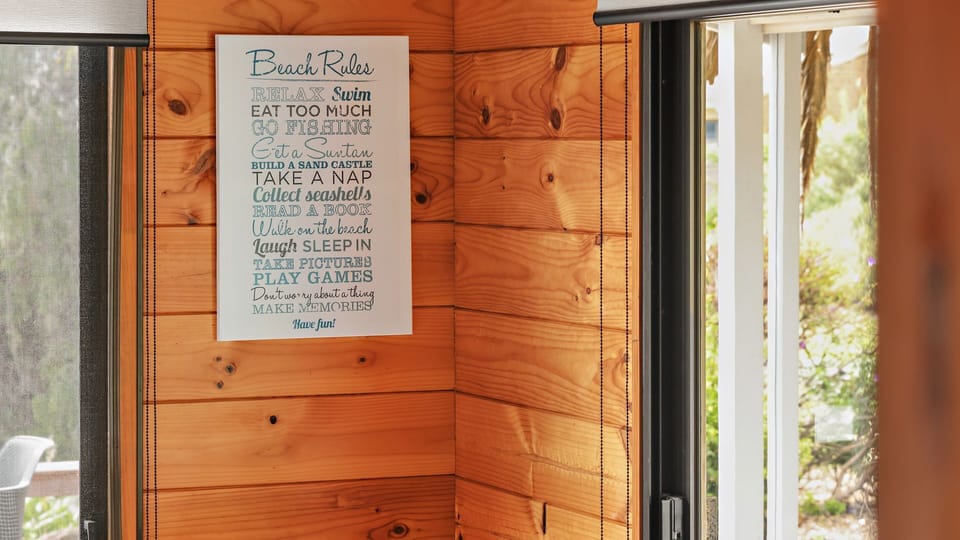 Beach Rules
RELAX Swim
EAT TOO MUCH
GO FISHING
Get a Suntan
BUILD A SAND CASTLE
TAKE A NAP
Collect seashells
READ A BOOK
Walk on the beach
Laugh SLEEP IN
TAKE PICTURES
PLAY GAMES
Don't worry about a thing
MAKE MEMORIES
Have fun!